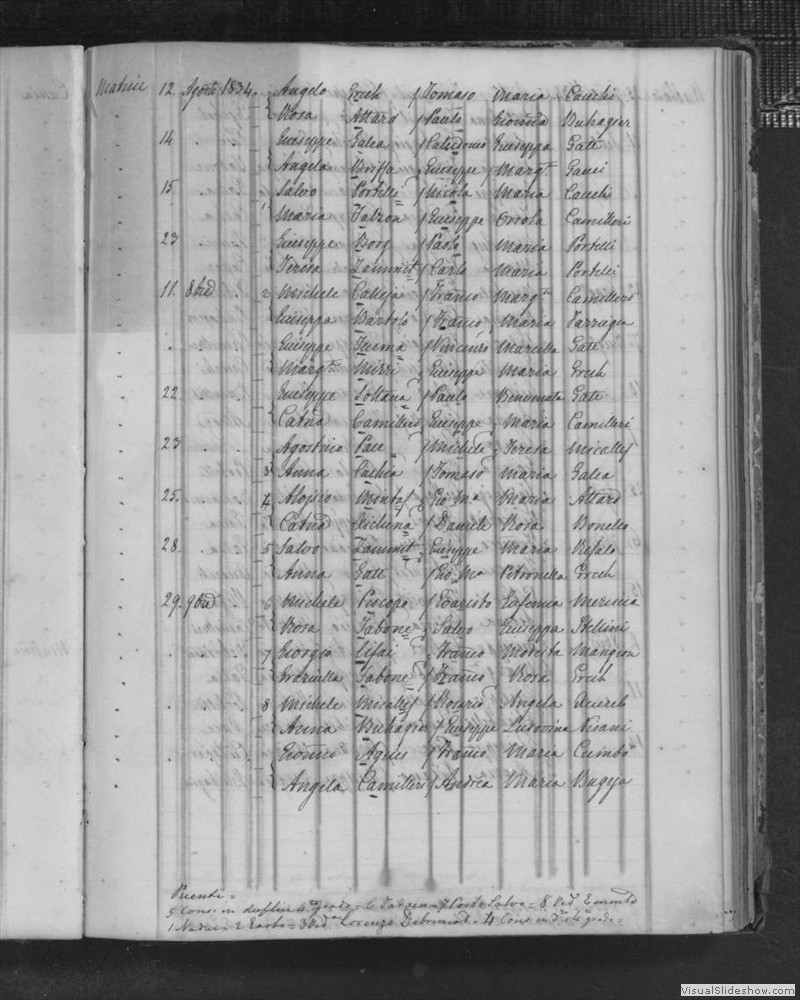 Matrice 12. Agosto 1834. Angelo Grech / Tomaso Maria Cauchi
Rosa Attard / Paulo Buhagier
14 Giuseppe Galea / Calcidonio Giuseppa Gatt
Angela Briffa Giuseppe / Marg.ta Gauci
15 Salvo Portelli / Nicola Maria Cauchi
1 Maria Falzon / Giuseppe Orsola Camilleri
23 Giuseppe Borg / Paolo Maria Portelli
Teresa Zammit / Carlo Maria Portelli
11. 8bre 2 Michele Calleja / Franco Marg.ta Camilleri
Giuseppa Bartolo / Franco Maria Farrugia
Giuseppe / Vincenzo Marcella Gatt
Marg.ta Mizzi Giuseppe Maria Grech
22 Giuseppe Soltana / Paulo Benvenuta Gatt
Catna Camilleri Giuseppe Maria Camilleri
23 Agostino Pace / Michele Teresa Micallef
3 Anna Cachia / Tomaso Maria Galea
25. 4 Aloisio / Gio Ma Maria Attard
Catna Xicluna / Daniele Rosa Bonello
28. 5 Salvo Zammit Giuseppe Maria Refalo
Anna Gatt / Gio Ma Petronella Grech
29. 9bre 6 Michele Piscopo / Evaristo Eufemia
Rosa Tabone Salvo Giuseppa Stellini
7 Giorgio / Franco Mangion
Graziulla Tabone / Franco Rosa Grech
8 Michele Micallef / Rosario Angela Auereb
Anna Buhagier / Giuseppe Ludovina Pisani
Gionni Agius / Franco Maria Cumbo
Angela Camilleri / Andrea Maria Bugeja
5 Cons in 4 grado 6 7 Salvo = 8
1 2 3 Lorenzo 4 Cons in 4 grado =
VisualSlideshow.com